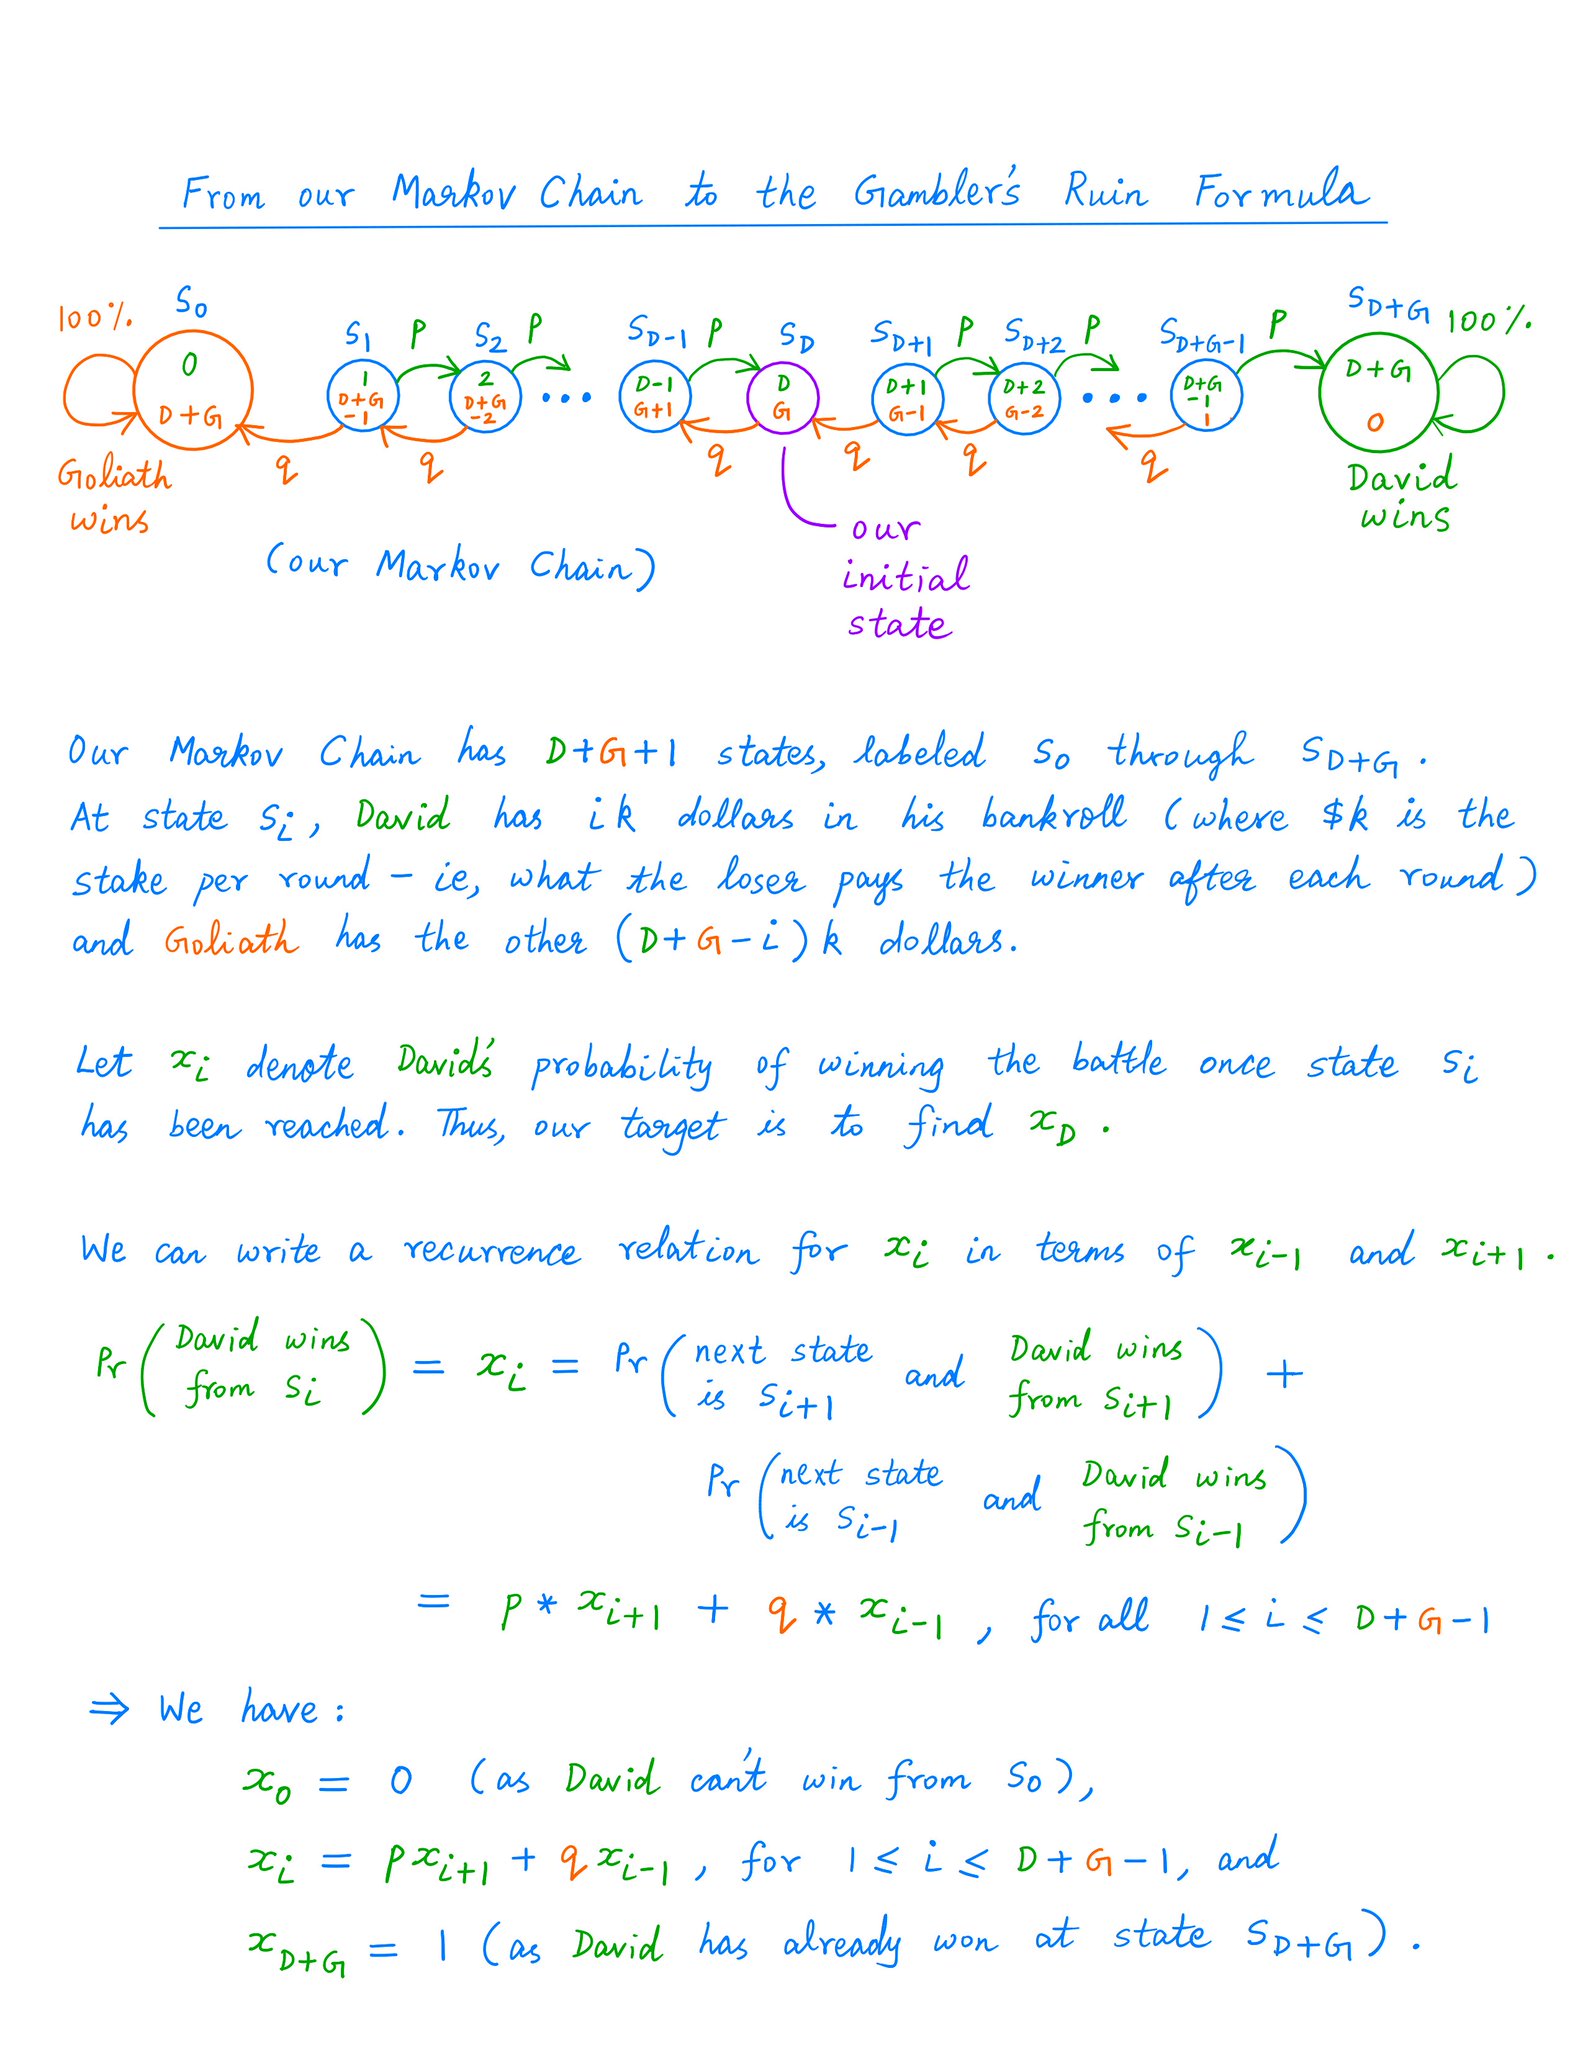 From our Markov Chain to the Gambler's Ruin Formula
100% S0 S1 P S2 P SD-1 P SD SD+1 P SD+2 P SD+G-1 P SD+G 100%
0 1 2 ... D-1 D D+1 D+2 ... D+G-1 D+G
D+G D+G-1 D+G-2 G+1 G G-1 G-2 1 0
q q q q q q
Goliath wins
David wins
our
initial
state
(our Markov Chain)
Our Markov Chain has D+G+1 states, labeled S0 through SD+G.
At state Si, David has ik dollars in his bankroll (where $k is the
stake per round - ie, what the loser pays the winner after each round)
and Goliath has the other (D+G-i)k dollars.
Let xi denote David's probability of winning the battle once state Si
has been reached. Thus, our target is to find xD.
We can write a recurrence relation for xi in terms of xi-1 and xi+1.
Pr(David wins from Si) = xi = Pr(next state is Si+1 and David wins from Si+1) +
Pr(next state is Si-1 and David wins from Si-1)
= p * xi+1 + q * xi-1, for all 1 ≤ i ≤ D+G-1
⇒ We have:
x0 = 0 (as David can't win from S0),
xi = pxi+1 + qxi-1, for 1 ≤ i ≤ D+G-1, and
xD+G = 1 (as David has already won at state SD+G).